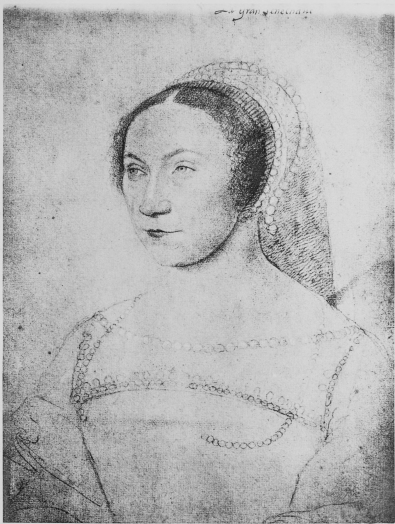 La gran senechalle